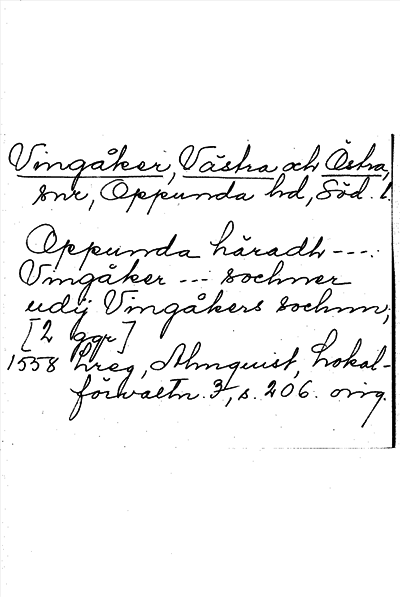 Vingåker, Västra och Östra,
snr, Oppunda hd, Söd. l.
Oppunda häradh ---.
Vingåker --- sochner
udij Vingåkers sochnn,
[2 ggr]
1558 hreg, Almquist, Lokal-
förvaltn. 3, s. 206. orig.